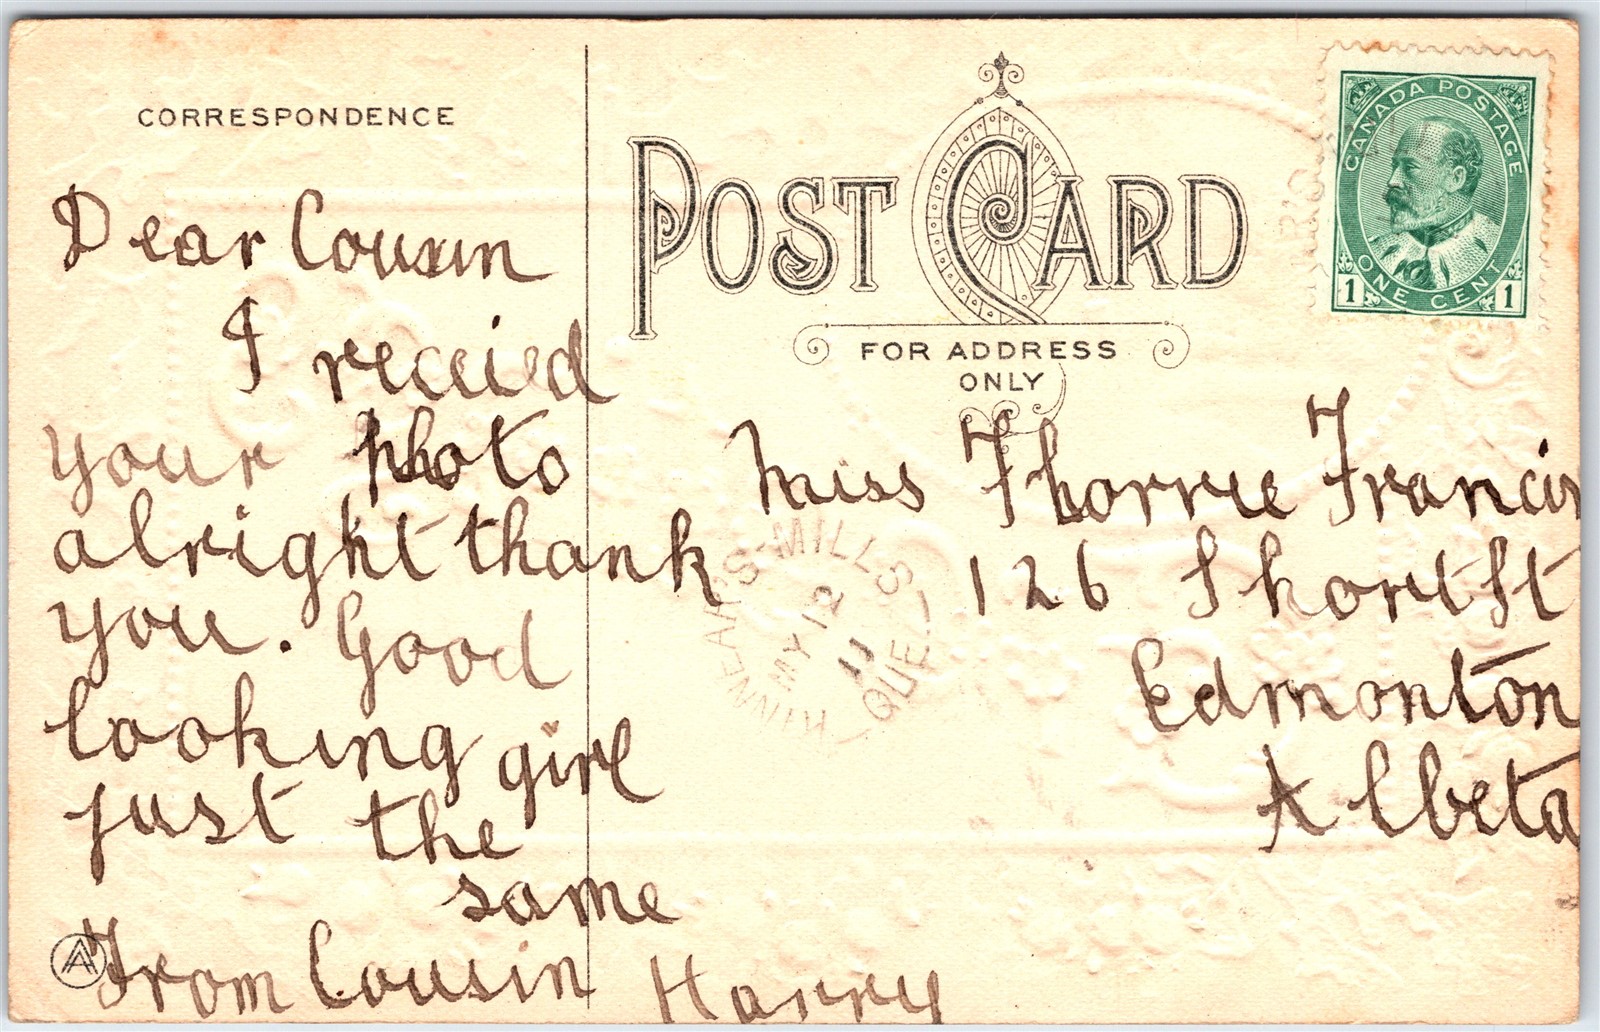 CORRESPONDENCE
POST CARD
FOR ADDRESS
ONLY
CANADA POSTAGE
ONE CENT
1 1
Dear Cousin
I receied
your photo
alright thank
you. Good
looking girl
just the
same
From Cousin Harry
Miss Thorrie Francis
126 Short St
Edmonton
Albeta
KINNEAR'S-MILLS
MY 12
11
QUE